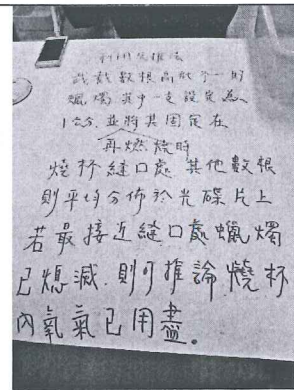 利用光碟
裁數數根高低不一的
蠟燭 其中一支設定為
1公分 並將其固定在
再燃燒時
燒杯縫口處 其他數根
則平均分佈於光碟片上
若最接近縫口處蠟燭
已熄滅 則可推論 燒杯
內氧氣已用盡。